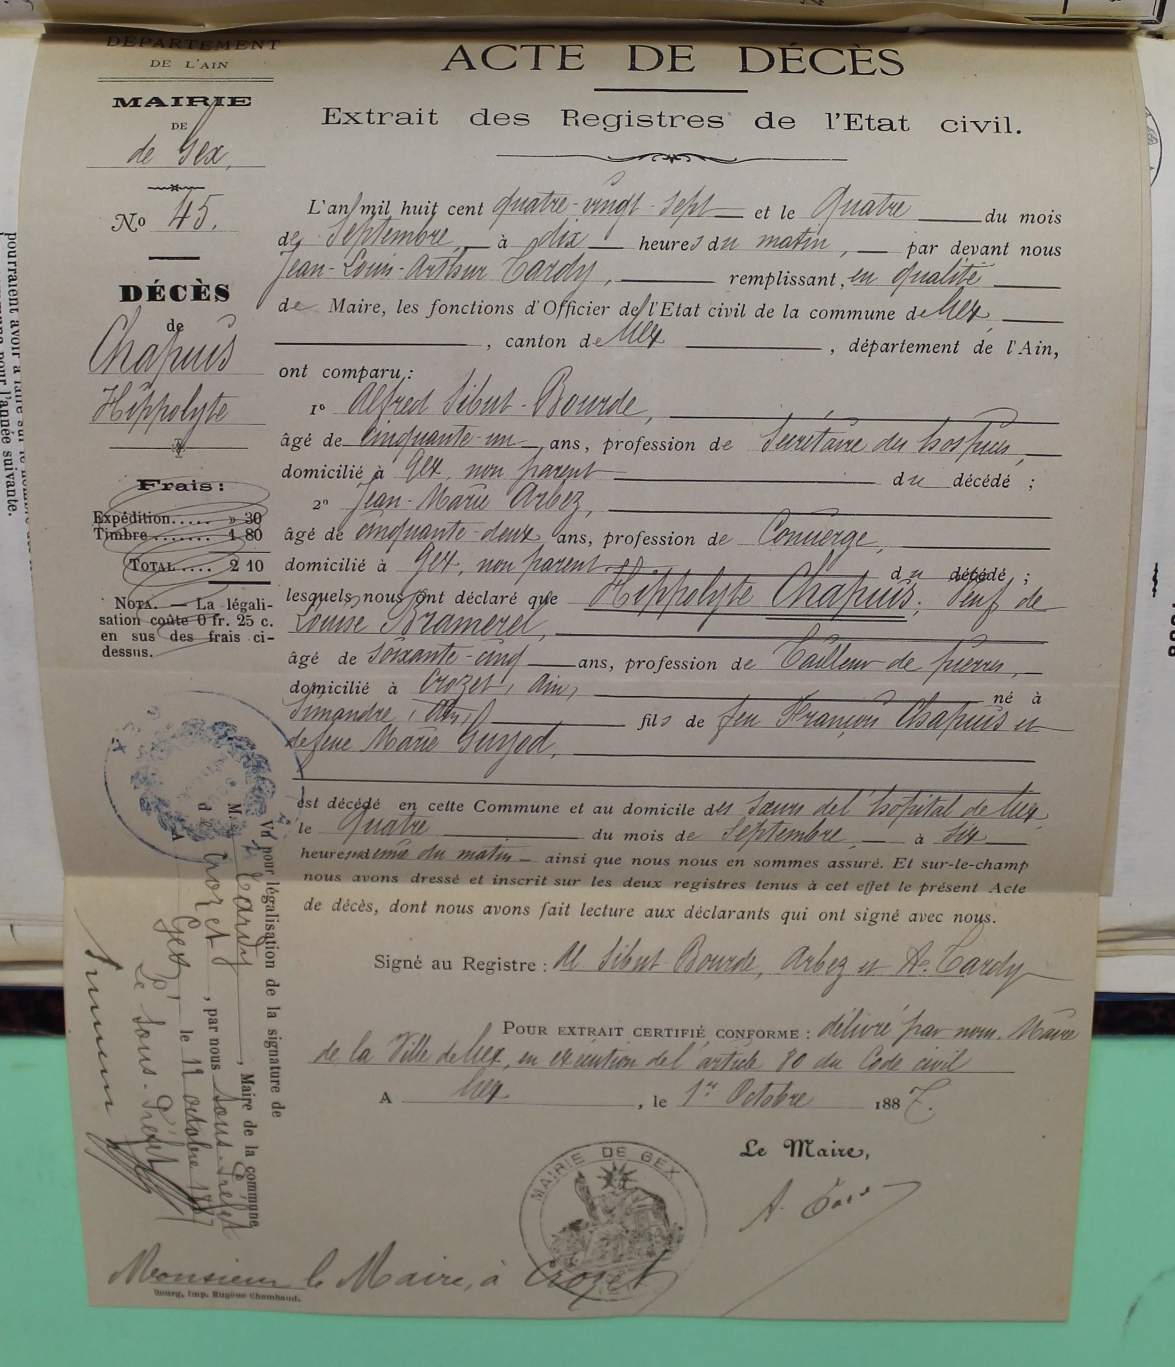 DÉPARTEMENT
DE L'AIN
MAIRIE
DE
de Gex,
No 45.
DÉCÈS
de
Chapuis
Hippolyte
Frais:
Expédition..... » 30
Timbre........ 1 80
TOTAL..... 2 10
NOTA. — La légali-
sation coûte 0 fr. 25 c.
en sus des frais ci-
dessus.
ACTE DE DÉCÈS
Extrait des Registres de l'Etat civil.
L'an mil huit cent quatre-vingt-sept et le Quatre du mois
de Septembre, à dix heures du matin, par devant nous
Jean-Louis-Arthur Tardy, remplissant, en qualité
de Maire, les fonctions d'Officier de l'Etat civil de la commune de Gex,
, canton de Gex, département de l'Ain,
ont comparu:
1o Alfred Sibut-Bourde,
âgé de cinquante-un ans, profession de Secrétaire des hospices,
domicilié à Gex, non parent du décédé;
2o Jean-Marie Arbez,
âgé de cinquante-deux ans, profession de Concierge,
domicilié à Gex, non parent du décédé;
lesquels nous ont déclaré que Hippolyte Chapuis, veuf de
Louise Brameret,
âgé de soixante-cinq ans, profession de Tailleur de pierres,
domicilié à Crozet, Ain, né à
Simandre, (Ain,) fils de feu François Chapuis et
de feue Marie Guyed,
est décédé en cette Commune et au domicile des Sœurs de l'hôpital de Gex,
le Quatre du mois de Septembre, à six
heures du matin ainsi que nous nous en sommes assuré. Et sur-le-champ
nous avons dressé et inscrit sur les deux registres tenus à cet effet le présent Acte
de décès, dont nous avons fait lecture aux déclarants qui ont signé avec nous.
Signé au Registre: Al Sibut Bourde, Arbez et A. Tardy
POUR EXTRAIT CERTIFIÉ CONFORME: délivré par nous, Maire
de la Ville de Gex, en exécution de l'article 80 du Code civil
A Gex, le 1er Octobre 1887.
Le Maire,
MAIRIE DE GEX
Vu pour légalisation de la signature de
M. Tardy, Maire de la commune
de Crozet, par nous Sous-Préfet
A Gex, le 11 octobre 1887
Le Sous-Préfet
Monsieur le Maire, à Crozet
Bourg, Imp. Eugène Chambaud.
pourraient avoir à faire sur le nombre
pour l'année suivante.